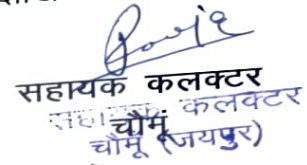 सहायक कलक्टर
सहायक कलक्टर
चौमूं
चौमू (जयपुर)